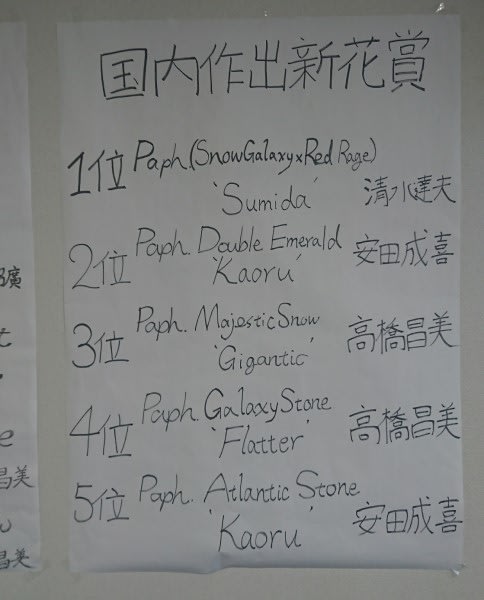 国内作出新花賞
1位 Paph.(SnowGalaxy×Red Rage)
'Sumida' 清水達夫
2位 Paph. Double Emerald
'Kaoru' 安田成喜
3位 Paph. MajesticSnow
'Gigantic' 高橋昌美
4位 Paph. GalaxyStone
'Flatter' 高橋昌美
5位 Paph. Atlantic Stone
'Kaoru' 安田成喜
t
e
昌美
w
昌美